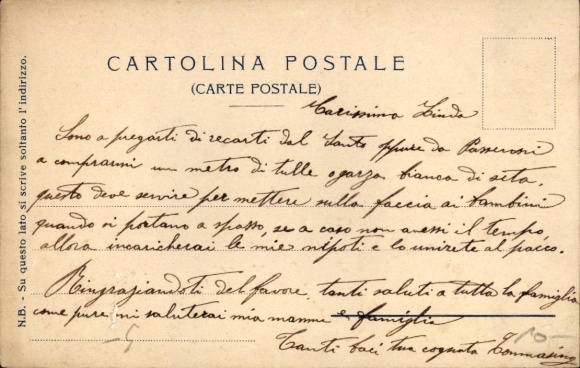 CARTOLINA POSTALE
(CARTE POSTALE)
N.B. - Su questo lato si scrive soltanto l'indirizzo.
Carissima Linda
Sono a pregarti di recarti dal Santo oppure da Passeroni
a comprarmi un metro di tulle o garza bianca di seta,
questo deve servire per mettere sulla faccia ai bambini
quando si portano a spasso, se a caso non avessi il tempo,
allora incaricherai le mie nipoti e lo unirete al pacco.
Ringraziandoti del favore, tanti saluti a tutta la famiglia
come pure mi saluterai mia mamma e famiglia
Tanti baci tua cognata Tommasina